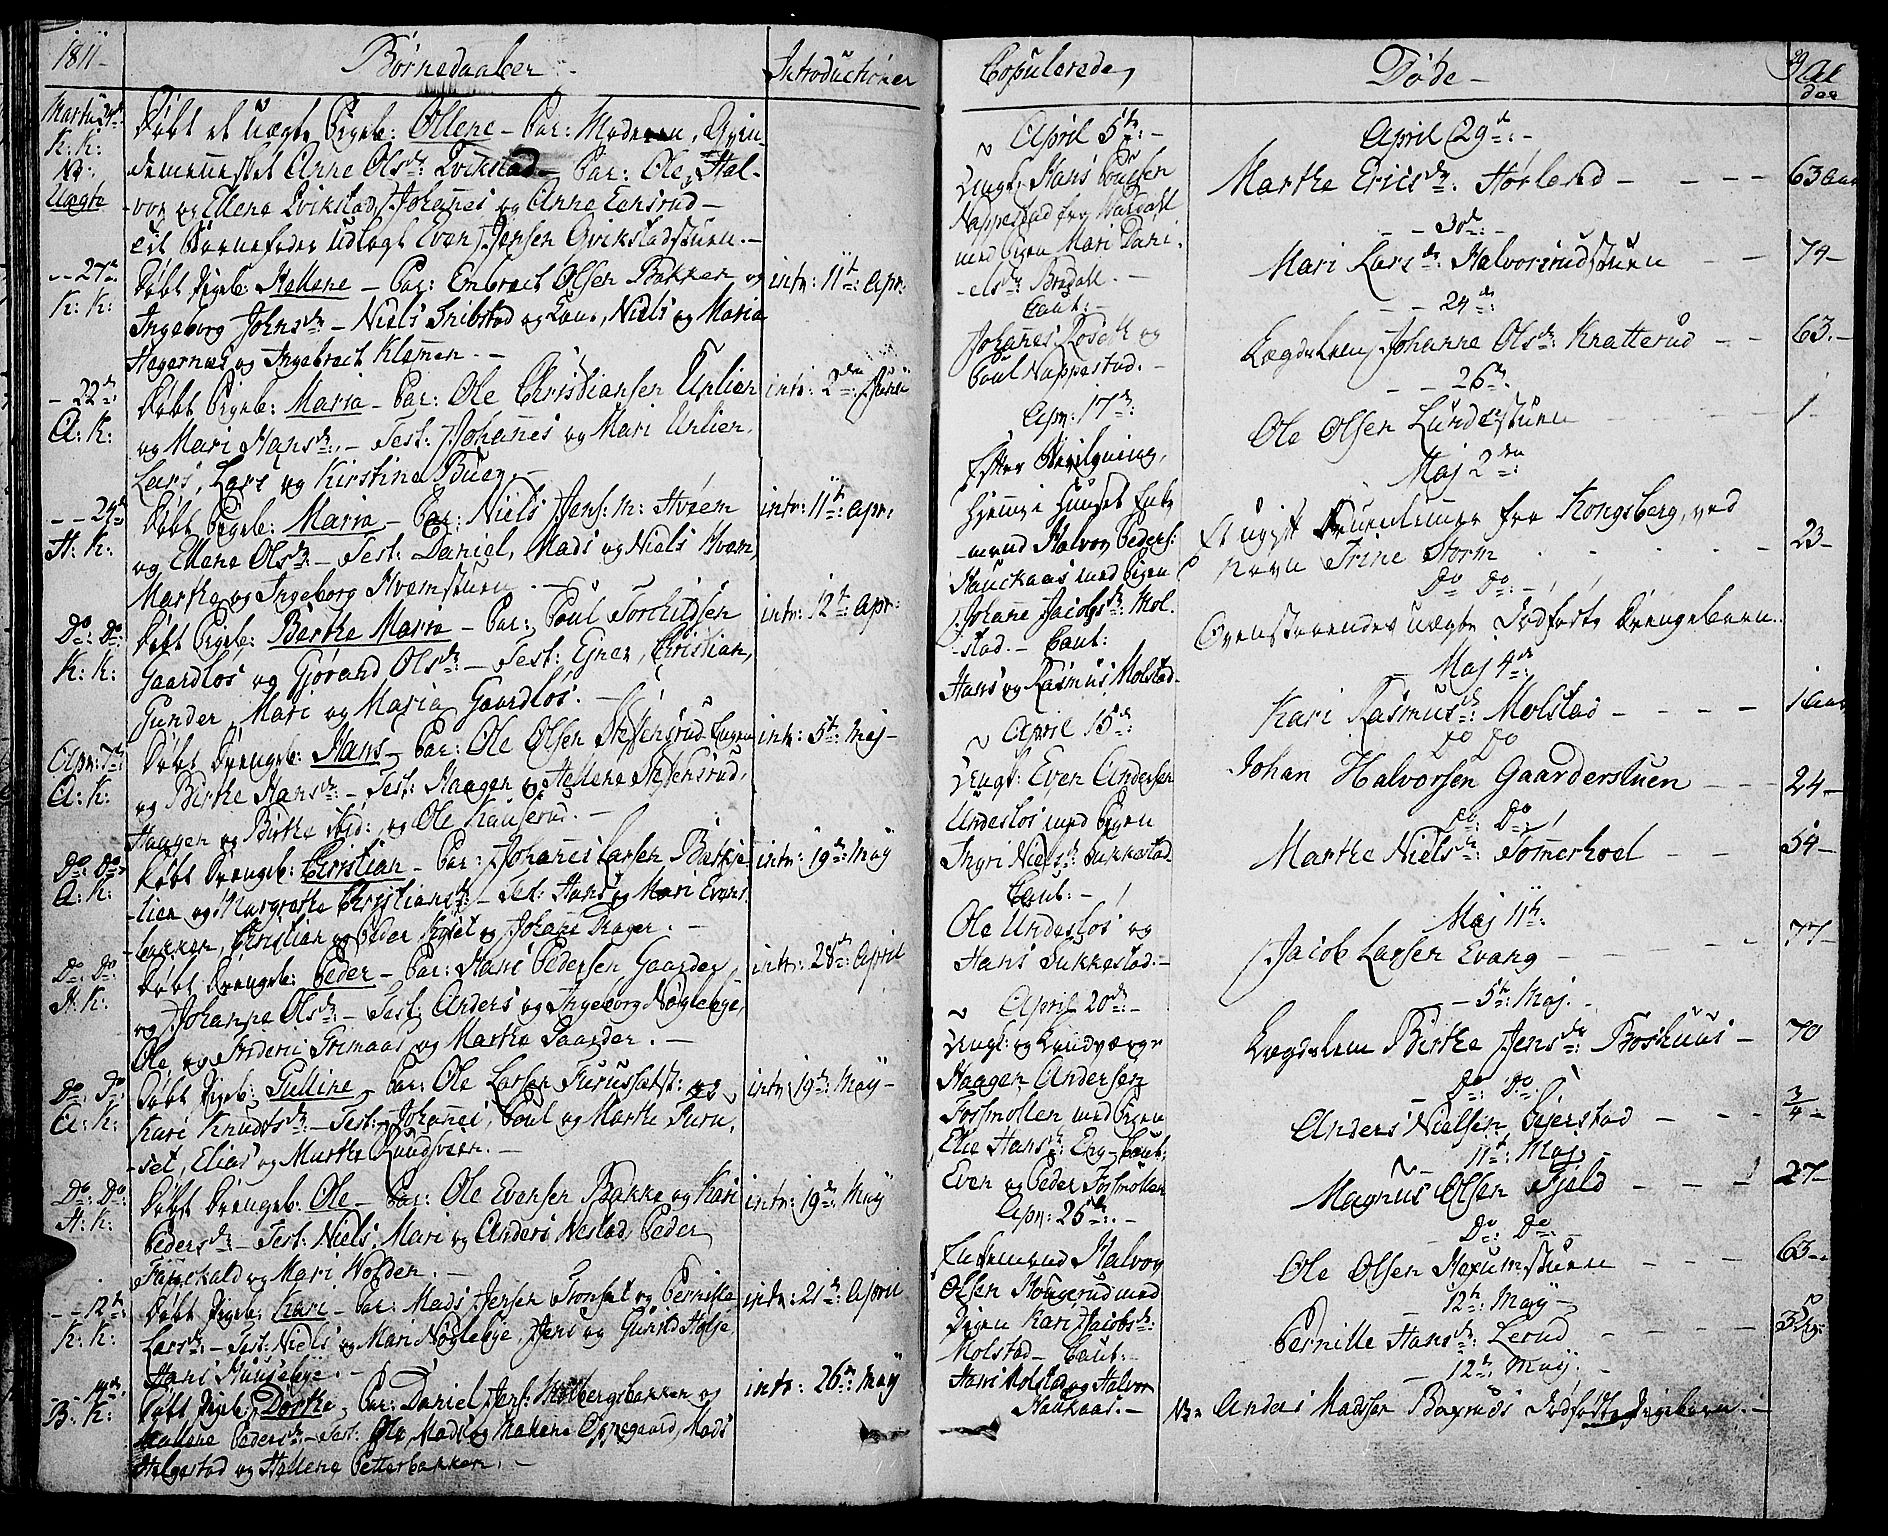 1811-
Børnedaaber -
Introductioner
Martii 24de
K: K:
No:
Uægte
Døbt et uægte Pigeb: Ollene - Par: Moderen, Qvin-
demennesket Anne Olsdr: Qvikstad - Par: Ole, Hal-
vor og Ellene Qvikstad, Johannes og Anne Eensrud -
til Barnefader udlagt Even Jensen Qvikstadstuen. -
- - 27de
K: K:
Døbt Pigeb: Hellene - Par: Embret Olsen Bakken og
Ingeborg Johnsdr: - Niels Fribstad og Kone, Niels og Maria
Hagernæs og Ingebret Klømmen. -
intr: 11te: Apr:
- 22de:
A: K:
Døbt Pigeb: Maria - Par: Ole Christiansen Unlien
og Mari Hansdr: - Test: Johannes og Mari Unlien,
Lars, Lars og Kirstine Bueng. -
intr: 2den: Junii
- - 24de
H: K:
Døbt Pigeb: Maria - Par: Niels Jens: m: Hvem
og Ellene Olsdr: - Test: Daniel, Mads og Niels Hvem,
Marthe og Ingeborg Hvemstuen. -
intr: 11te: Apr:
Do: Do:
K: K:
Døbt Pigeb: Berthe Maria - Par: Poul Torchildsen
Gaardløs og Gjørand Olsdr: - Test: Ejner, Christian,
Gunder, Mari og Maria Gaardløs. -
intr: 12te: Apr:
Apr: 7de:
A: K:
Døbt Drengeb: Hans - Par: Ole Olsen Steffensrud
og Birthe Hansdr: - Test: Haagen og Hellene Steffensrud,
Haagen og Birthe ibid: og Ole Kauserud. -
intr: 5te: Maj -
Do: Do:
A: K:
Døbt Drengeb: Christian - Par: Johannes Larsen Bække-
lien og Margrethe Christiansdr: - Test: Hans og Mari Evens-
bakken, Christian og Peder og Johanne Kager. -
intr: 19de: Maÿ
Do: Do:
H: K:
Døbt Drengeb: Peder - Par: Hans Pedersen Gaarder
og Johanne Olsdr: - Test: Anders og Ingeborg Nøglebye,
Ole og Frideric Grimaas og Marthe Gaarder. -
intr: 28de: April
Do: Do:
A: K:
Døbt Pigeb: Guline - Par: Ole Larsen Furusætst: og
Kari Knudsdr: - Test: Johannes, Poul og Marthe Furu-
set, Elias og Marthe Rundsveen. -
intr: 19de: Maÿ -
Do: Do:
H: K:
Døbt Drengeb: Ole - Par: Ole Evensen Bakke og Kari
Pedersdr: - Test: Niels, Mari og Anders Nestad, Peder
og Mari Volden. -
intr: 19de: Maÿ
- - 12te:
K: K:
Døbt Pigeb: Kari - Par: Mads Jensen Fronsæt og Pernille
Larsdr: - Test: Niels og Mari Nøglebye, Jens og Gunild Holje,
Hans Huusebye. -
intr: 21de: April
- 14de:
B: K:
Døbt Pigeb: Dorthe, Par: Daniel Jens: Kolbergsbakken og
Mallene Pedersdr: - Test: Ole, Mads og Mallene Oppegaard, Mads
Helgestad og Hellene Petterbakken. -
intr: 26de: Maÿ
Copulerede,
~ April 5te: -
Ungk: Hans Poulsen
Nappestad fra Wardall
med Pigen Mari Dani-
elsdr: Bredall. -
Caut: -
Johannes Roseth og
Poul Nappestad. -
Apr: 17de:
Efter Bevilgning,
hjemme i Huuset Enke-
-mand Halvor Peders:
Hauckaas med Pigen
Johanne Jacobsdr: Mol-
stad. - Caut:
Hans og Rasmus Molstad -
~ April 15de:
Ungk: Even Andersen
Undesløs med Pigen
Ingri Nielsdr: Sukkestad
Caut: -
Ole Undesløs og
Hans Sukkestad: -
~ April 20de: -
Ungk: og Landværge
Haagen Andersen
Fossmollen med Pigen
Elie Hansdr: Eng - Caut:
Even og Peder Fossmollen
Apr: 25de: -
Enkemand Halvor
Olsen Hougerud med
Pigen Kari Jacobsdr:
Molstad - Caut: -
Hans Molstad og Halvor
Haukaas. -
Døde -
April 29de: -
Marthe Ericsdr: Hørland - - - - 63 Aar
- - 30te: -
Mari Larsdr: Halvorsrudstuen - - 74 -
- - 24de:
Lægdslem, Johanne Olsdr: Knatterud - - 63. -
- - 26de:
Ole Olsen Lundestuen - - - 1 -
Maj 2den:
Et ugift Fruentimmer fra Kongsberg, ved
Navn Trine Storm - - - 23 -
Do: Do: -
Ovenstaaendes uægte Dødfødte Drengebarn. -
Maj 4de:
Kari Rasmusdr: Molstad - - - - 1 Aar
Do Do
Johan Halvorsen Gaarderstuen - - - 24 -
Do: Do:
Marthe Nielsdr: Tømmerhoel - - 54 -
Maj 11te:
Jacob Larsen Evang - - - - 77 -
- 5te: Maj. -
Lægdslem Birthe Jensdr: Boshuus - 70
- Do: Do:
Anders Nielsen Sejerstad - - - 3/4 -
~ - 11te: Maj. -
Magnus Olsen Fjeld - - - 27 -
Do: Do: -
Ole Olsen Hexumstuen - - - 63 -
- 12te: Maÿ -
Pernille Hansdr: Lerud - - - -
- 12te: Maÿ: -
No: Anders Madsen Dødfødte Pigebarn. -